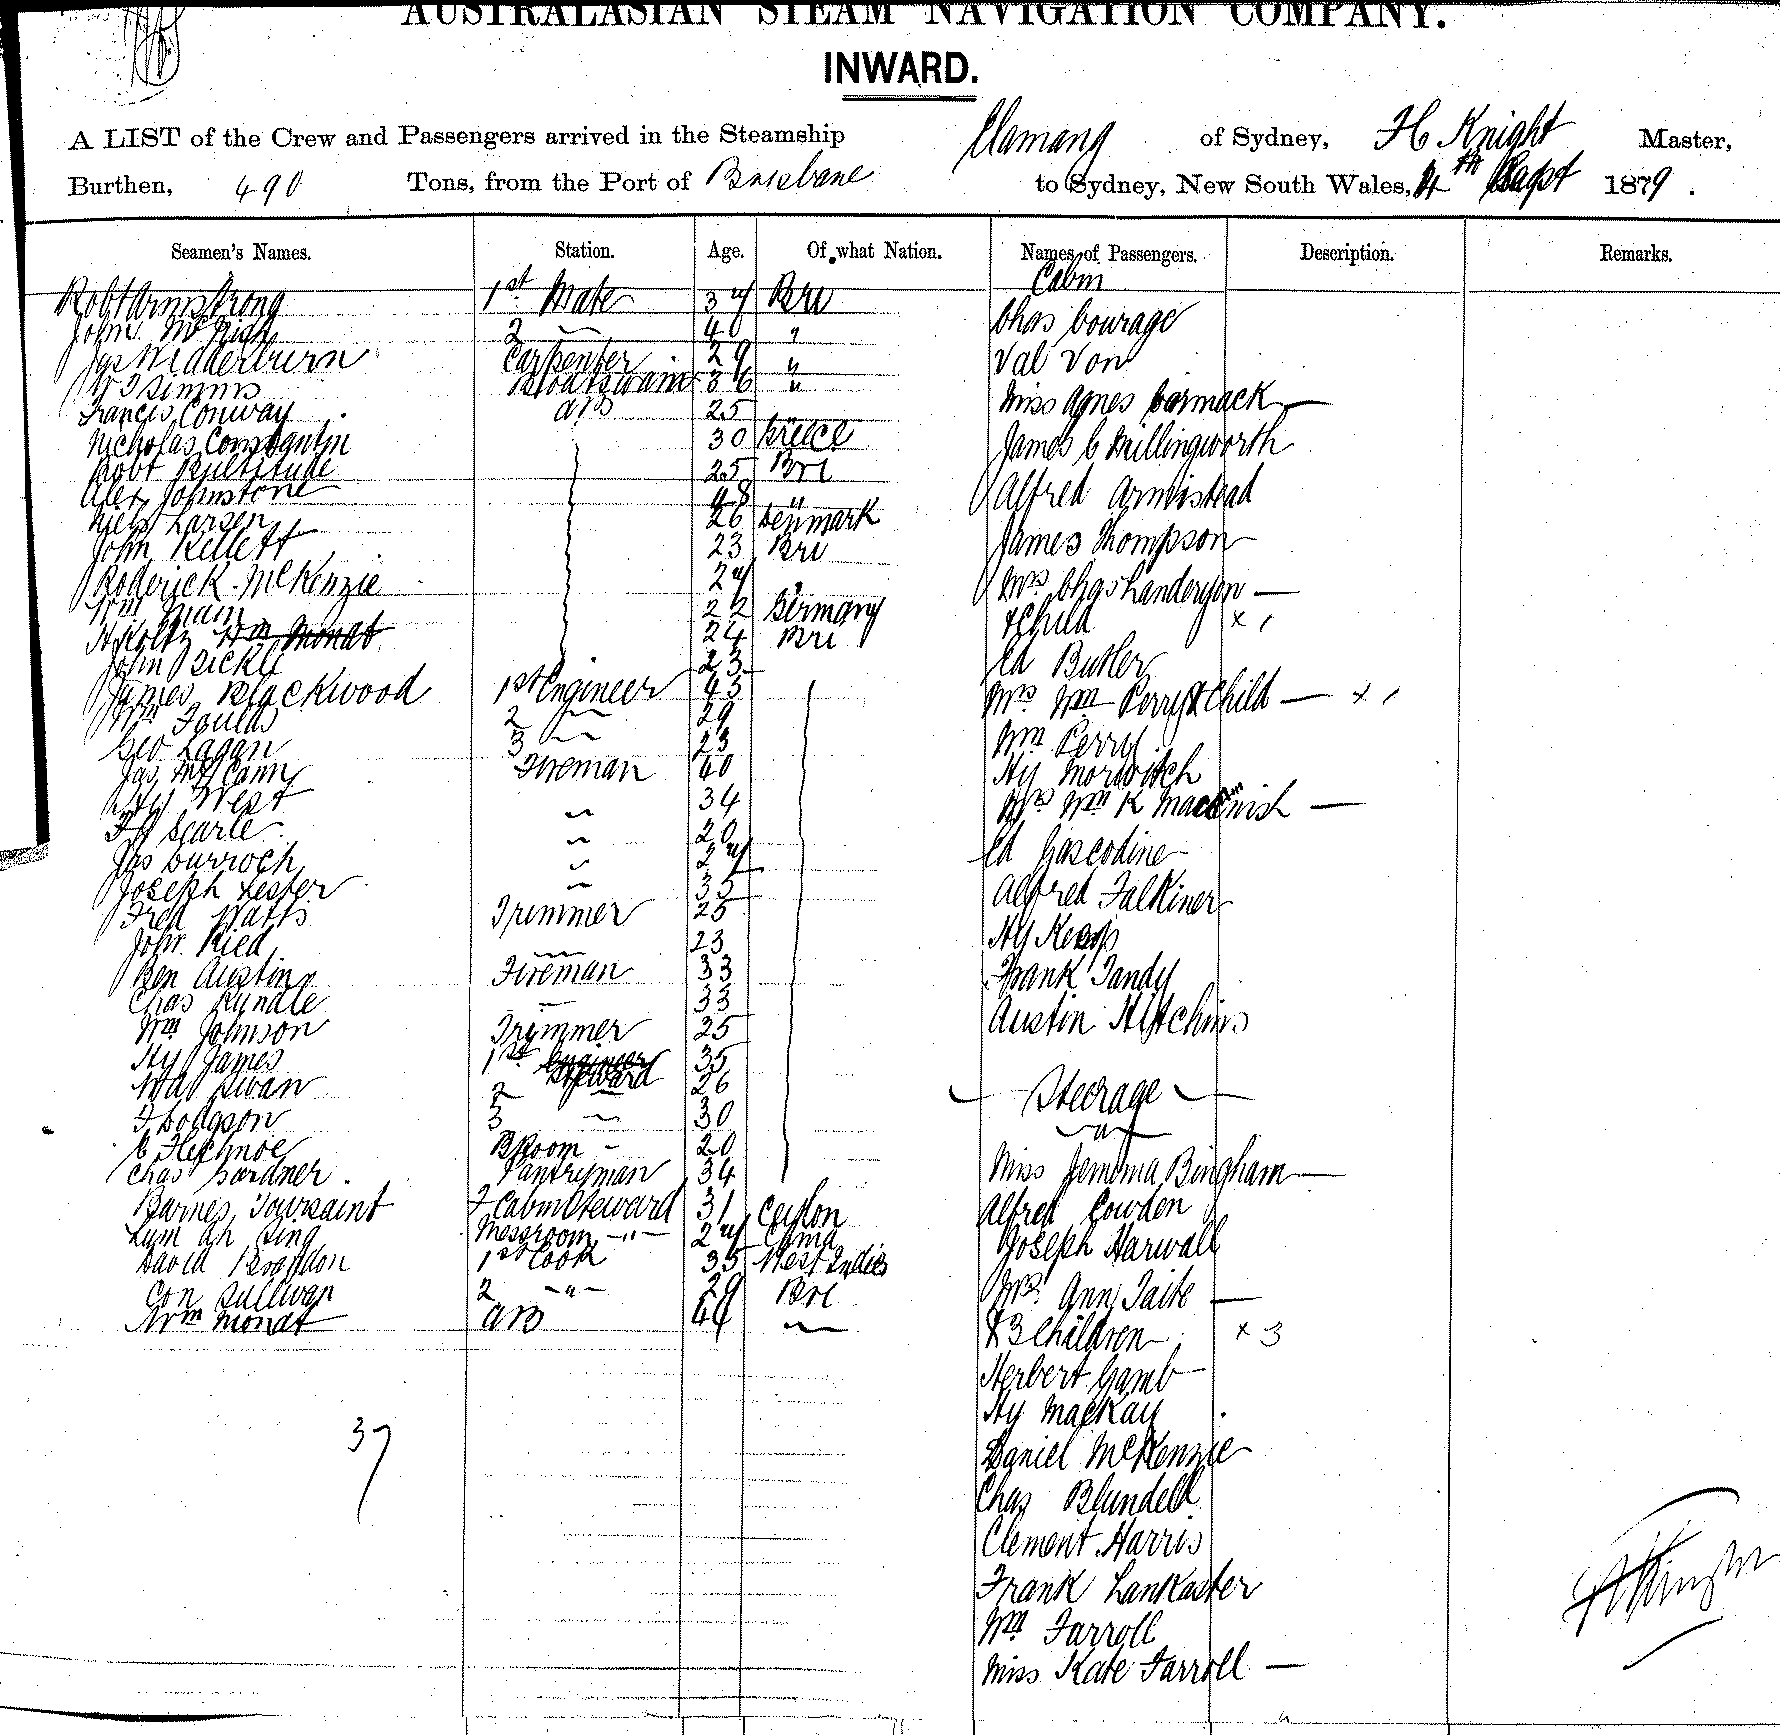 AUSTRALASIAN STEAM NAVIGATION COMPANY.
INWARD.
A LIST of the Crew and Passengers arrived in the Steamship Elamang of Sydney, H Knight Master,
Burthen, 490 Tons, from the Port of Brisbane to Sydney, New South Wales, 4th 1879.
Seamen's Names. Station. Age. Of what Nation. Names of Passengers. Description. Remarks.
Cabin
Robt Armstrong 1st Mate 37 Bri
John 2 40 "
Jas Wedderburn Carpenter 29 "
Simms Boatswain 36 "
Francis Conway AB 25
Nicholas Constantin 30 Greece
Robt Bultitude 25 Bri
Alex Johnstone 48 "
Niels Larsen 26 Denmark
John Kellett 23 Bri
Roderick McKenzie 27 "
Wm 22 Germany
H Koltz Wm Monat 24 Bri
John Bickle 23
James Blackwood 1st Engineer 45
Wm Foulds 2 29
Geo Lagan 3 23
Jas McCann Fireman 40
Hy West 34
Searle 20
Jas Durroch 27
Joseph Lester 35
Fred Watts Trimmer 25
John Ried 23
Ben Austin Fireman 33
Chas Rundle 33
Wm Johnson Trimmer 25
Hy James 1st Engineer Steward 35
Swan 2 26
F Dodgson 3 30
E BRoom 20
Chas Gardner Pantryman 34
Barnes Toursaint F Cabin Steward 31 Ceylon
Lym Ah Sing Messroom -"- 27 China
David 1st Cook 35 West Indies
Con Sullivan 2 -"- 29 Bri
Wm Monat AB 44
37
Chas Courage
Val Von
Miss Agnes Cormack —
James C Millingworth
Alfred Armistead
James Thompson
Mrs Chas —
& Child x 1
Ed Butler
Mrs Wm Perry & Child — x 1
Wm Perry
Hy Morwitch
Mrs Wm K —
Ed Gascodine
Alfred Falkiner
Hy Keep
Frank Tandy
Austin Hutchins
Steerage
Miss Jemima Bingham —
Alfred Cowden
Joseph Harwall
Mrs Ann Taite —
& 3 Children x 3
Herbert Gamb
Hy Mackay
Daniel McKenzie
Chas Blundell
Clement Harris
Frank Lankaster
Wm Farroll
Miss Kate Farroll —